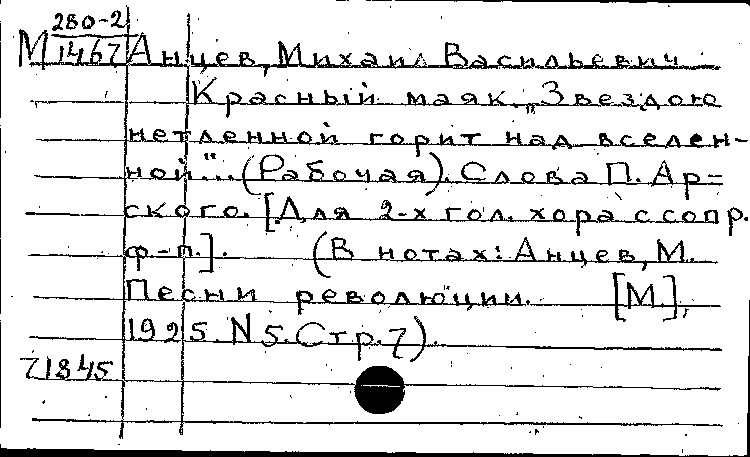 280-2
М 1467 Анцев, Михаил Васильевич
Красный маяк. „Звездою
нетленной горит над вселен-
ной"... (Рабочая). Слова П. Ар-
ского. [Для 2-х гол. хора с сопр.
ф-п.]. (В нотах: Анцев, М.
Песни революции. [М.],
1925. N 5. Стр. 7).
71845